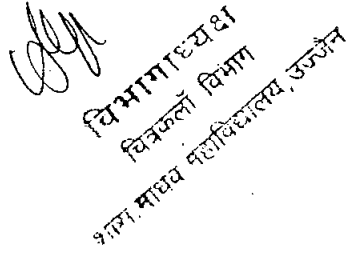 विभागाध्यक्ष
चित्रकलॉ विभाग
शास. माधव महाविद्यालय, उज्जैन